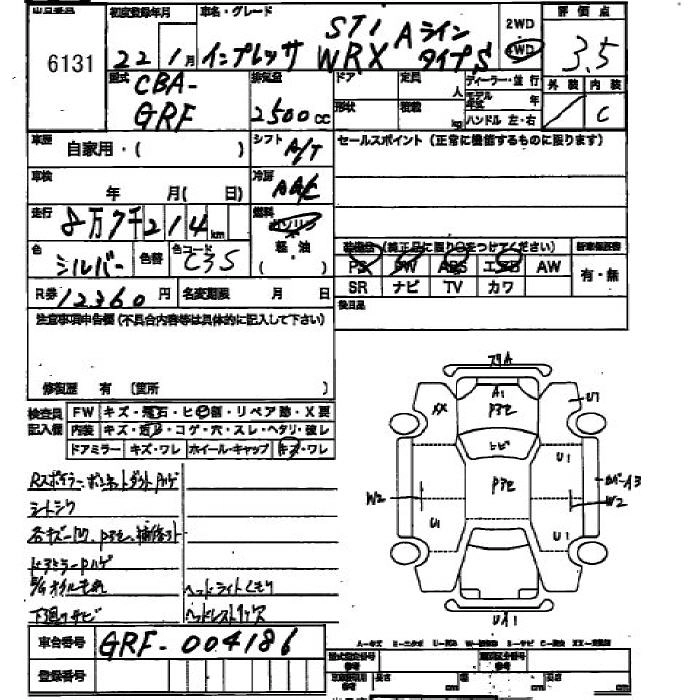 出品番号 初度登録年月 車名・グレード 2WD 評価点
6131 22 1月 インプレッサ STI Aライン
WRX タイプS 4WD 3.5
型式 CBA- 排気量 ドア 定員 ディーラー・並行 外装 内装
GRF 2500cc 人 モデル年式 年 C
形状 積載 kg ハンドル 左・右
車歴 自家用・( ) シフト A/T セールスポイント (正常に機能するものに限ります)
車検 年 月( 日) 冷房 AAC
走行 8万7千214km 燃料 ガソリン
軽・油
( )
色 シルバー 色替 色コード C3S
装備品(純正品に限り○をつけてください) 新車保証書
PS PW ABS エアB AW 有・無
SR ナビ TV カワ
R券 12360円 名変期限 月 日 後日品
注意事項申告欄(不具合内容等は具体的に記入して下さい)
修復歴 有 (箇所 )
検査員記入欄 FW キズ・飛石・ヒビ割・リペア跡・X要
内装 キズ・汚れ・コゲ・穴・スレ・ヘタリ・破レ
ドアミラー キズ・ワレ ホイール・キャップ キズ・ワレ
Rスポイラー、ボンネットダクトハゲ
シートシワ
各キズ凹、P3セ、補修ヶ所
ドアミラーハゲ
E/Gオイルもれ ヘッドライトくもり
下廻りサビ
A1
XX P3セ U1
トビ U1
W2 P3セ W2
U1 U1
UA1
車台番号 GRF-004186
登録番号
A-キズ E-エクボ U-凹み
型式指定番号 類別区分番号
長さ cm 幅 cm 高さ cm